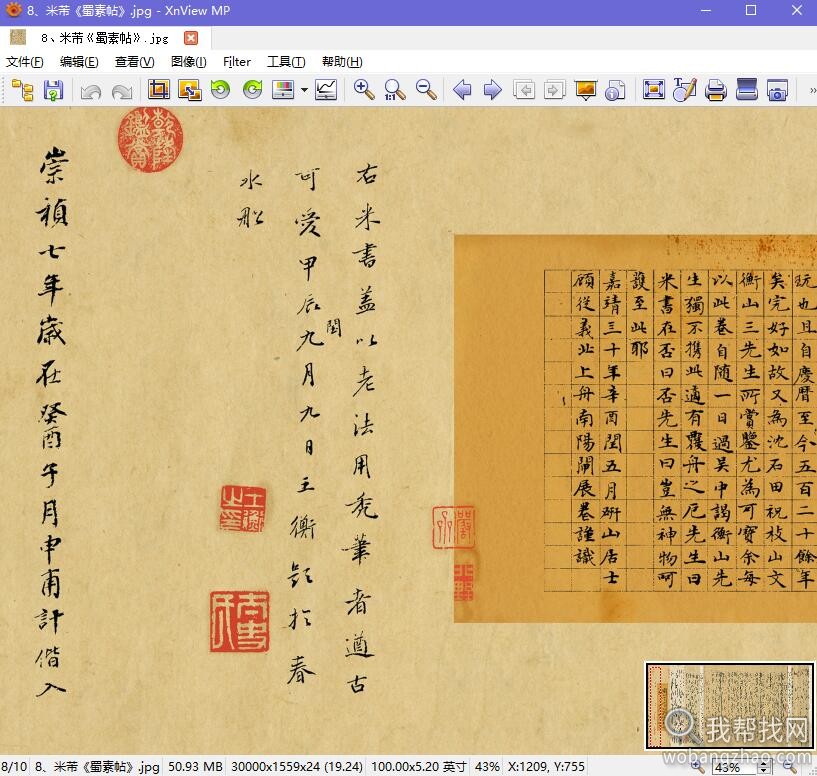 8、米芾《蜀素帖》.jpg - XnView MP
8、米芾《蜀素帖》.jpg
文件(F) 编辑(E) 查看(V) 图像(I) Filter 工具(T) 帮助(H)
1:1
玩也且自慶曆至今五百二十餘年
矣完好如故又為沈石田祝枝山文
衡山三先生所賞鑒尤為可寶余每
以此卷自随一日過吴中謁衡山先
生獨不携此適有覆舟之厄先生曰
米書在否曰否先生曰豈無神物呵
護至此耶
嘉靖三十年辛酉閏五月研山居士
顧從義北上舟南陽閘展卷謹識
右米書蓋以老法用禿筆者遒古
可愛甲辰閏九月九日王衡題於春
水船
乾隆鑑賞
王衡之印
崇禎七年歲在癸酉午月申甫計偕入
我帮找网
wobangzhao.com
8/10 8、米芾《蜀素帖》.jpg 50.93 MB 30000x1559x24 (19.24) 100.00x5.20 英寸 43% X:1209, Y:755 43%